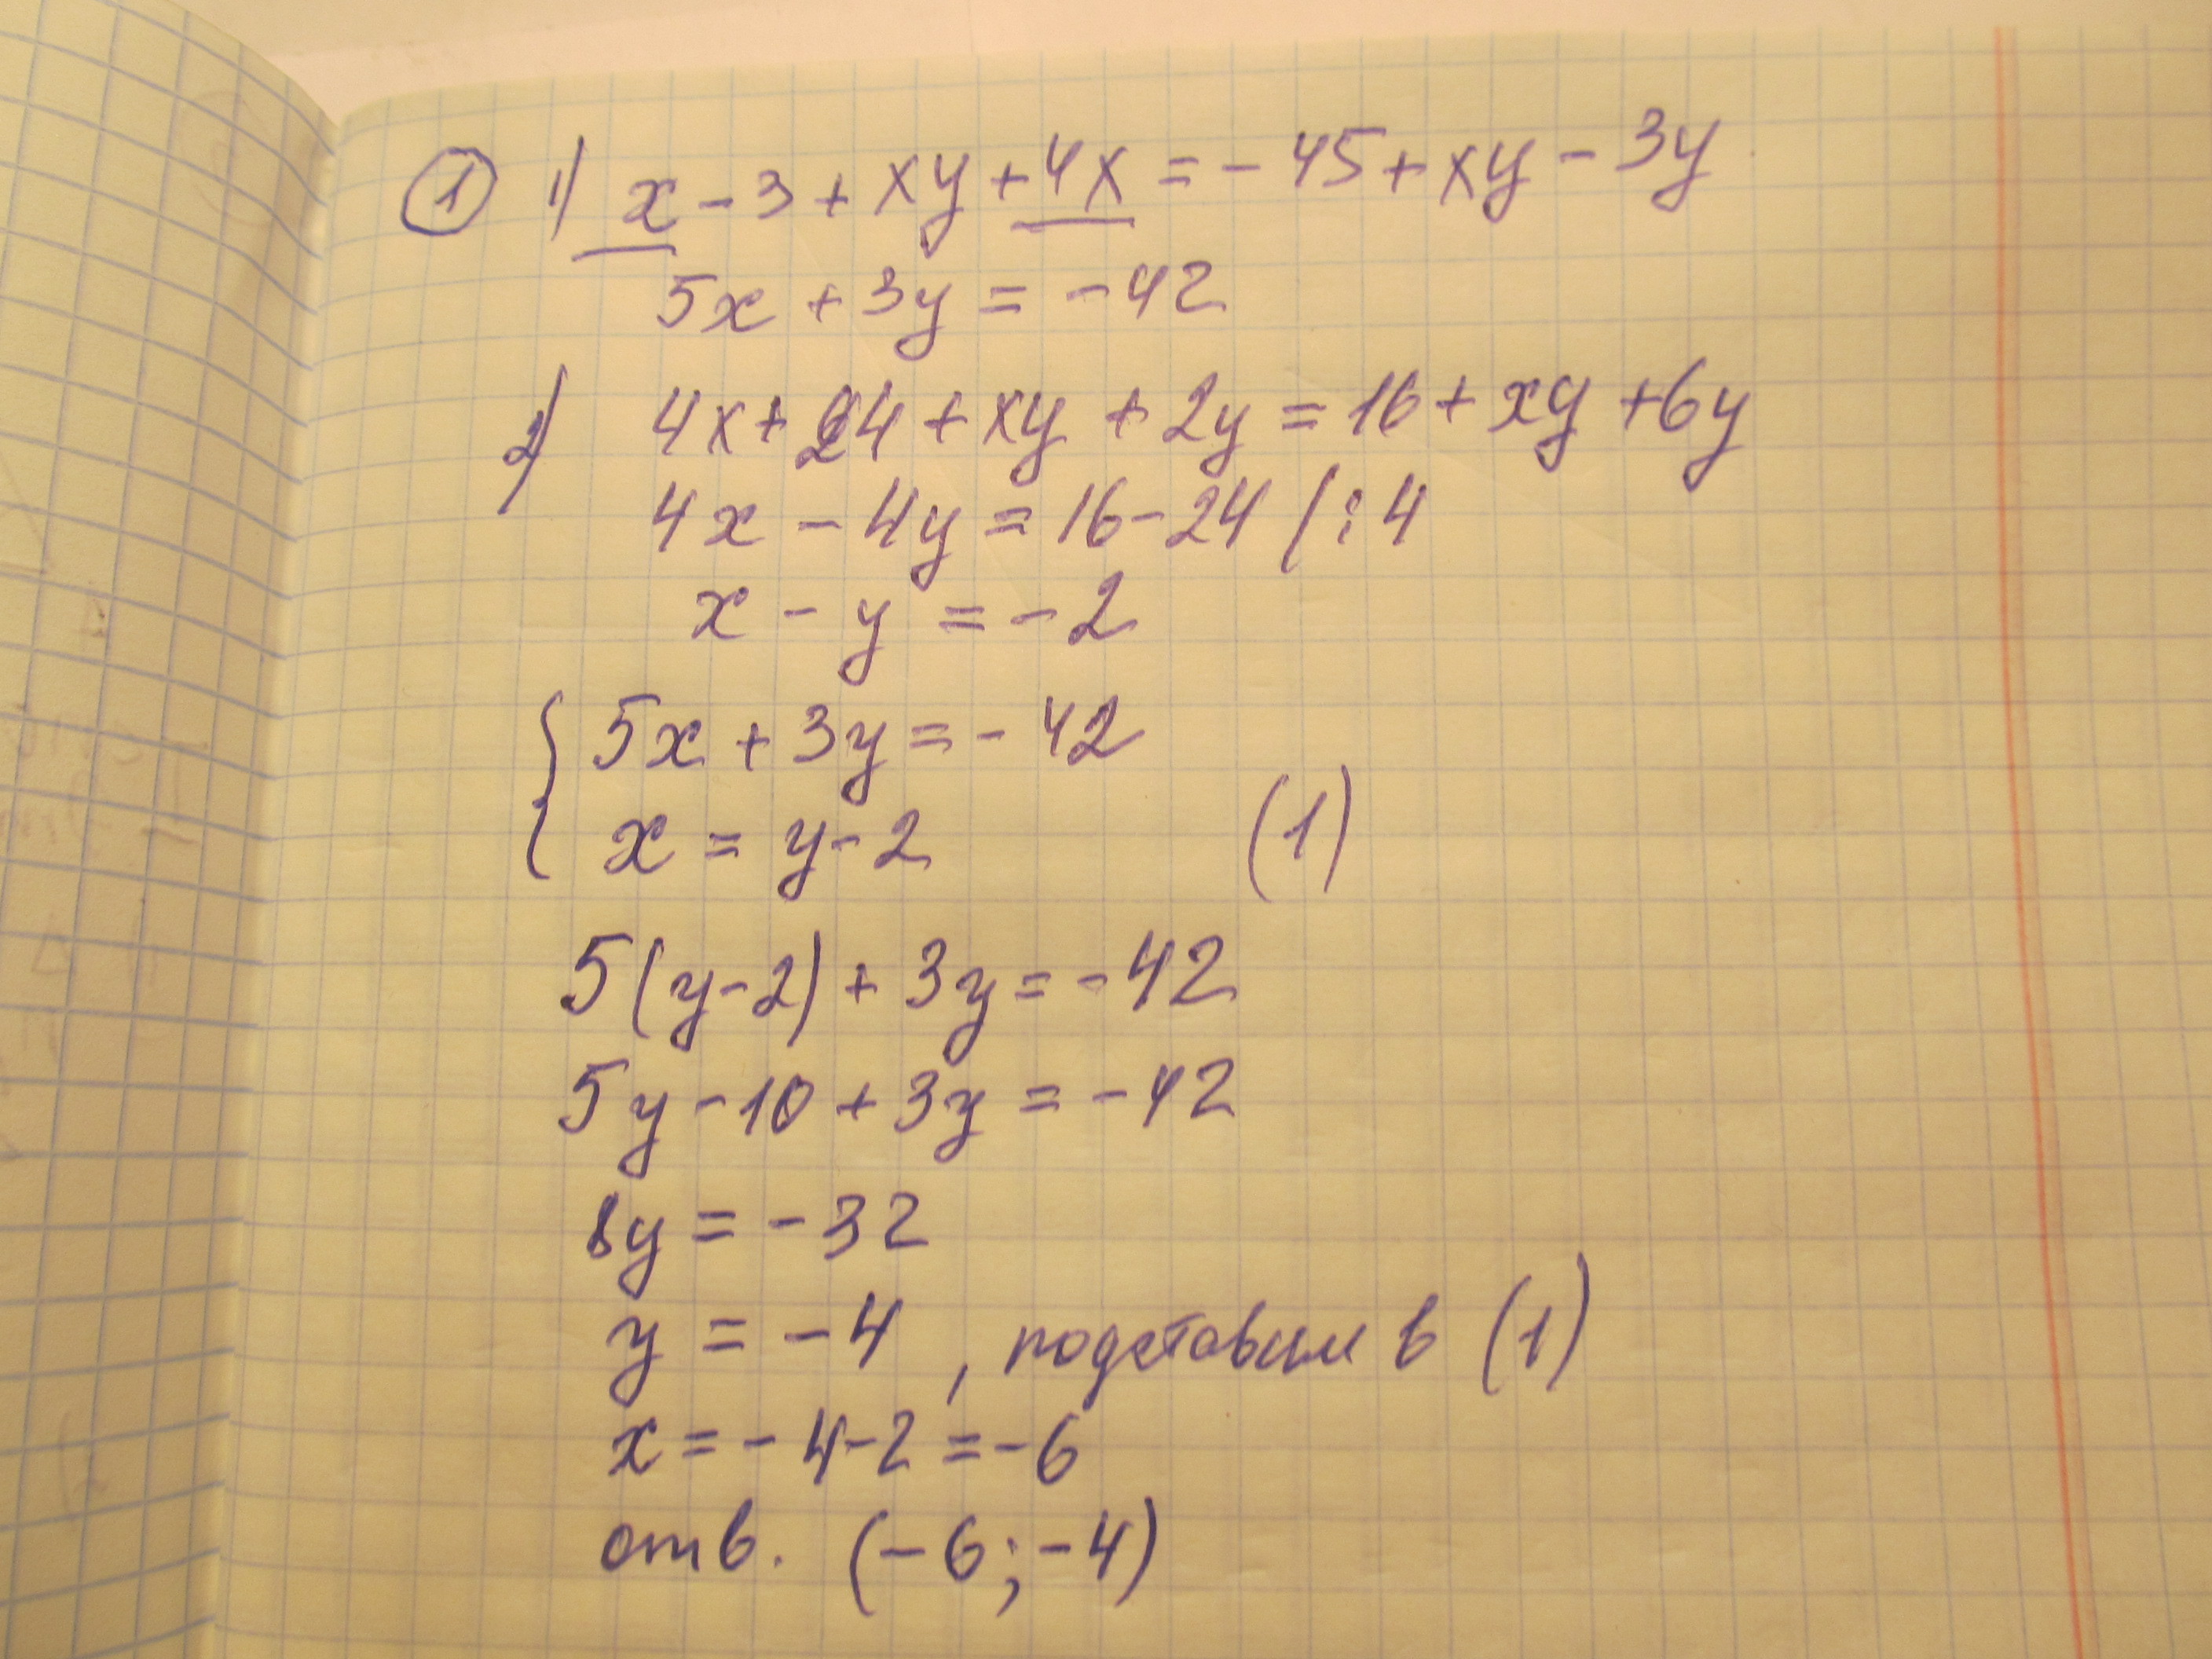 ① 1) x - 3 + xy + 4x = - 45 + xy - 3y
5x + 3y = - 42
2) 4x + 24 + xy + 2y = 16 + xy + 6y
4x - 4y = 16 - 24 / : 4
x - y = - 2
{ 5x + 3y = - 42
x = y - 2 (1)
5(y - 2) + 3y = - 42
5y - 10 + 3y = - 42
8y = - 32
y = - 4 , подставим в (1)
x = - 4 - 2 = - 6
отв. (- 6; - 4)